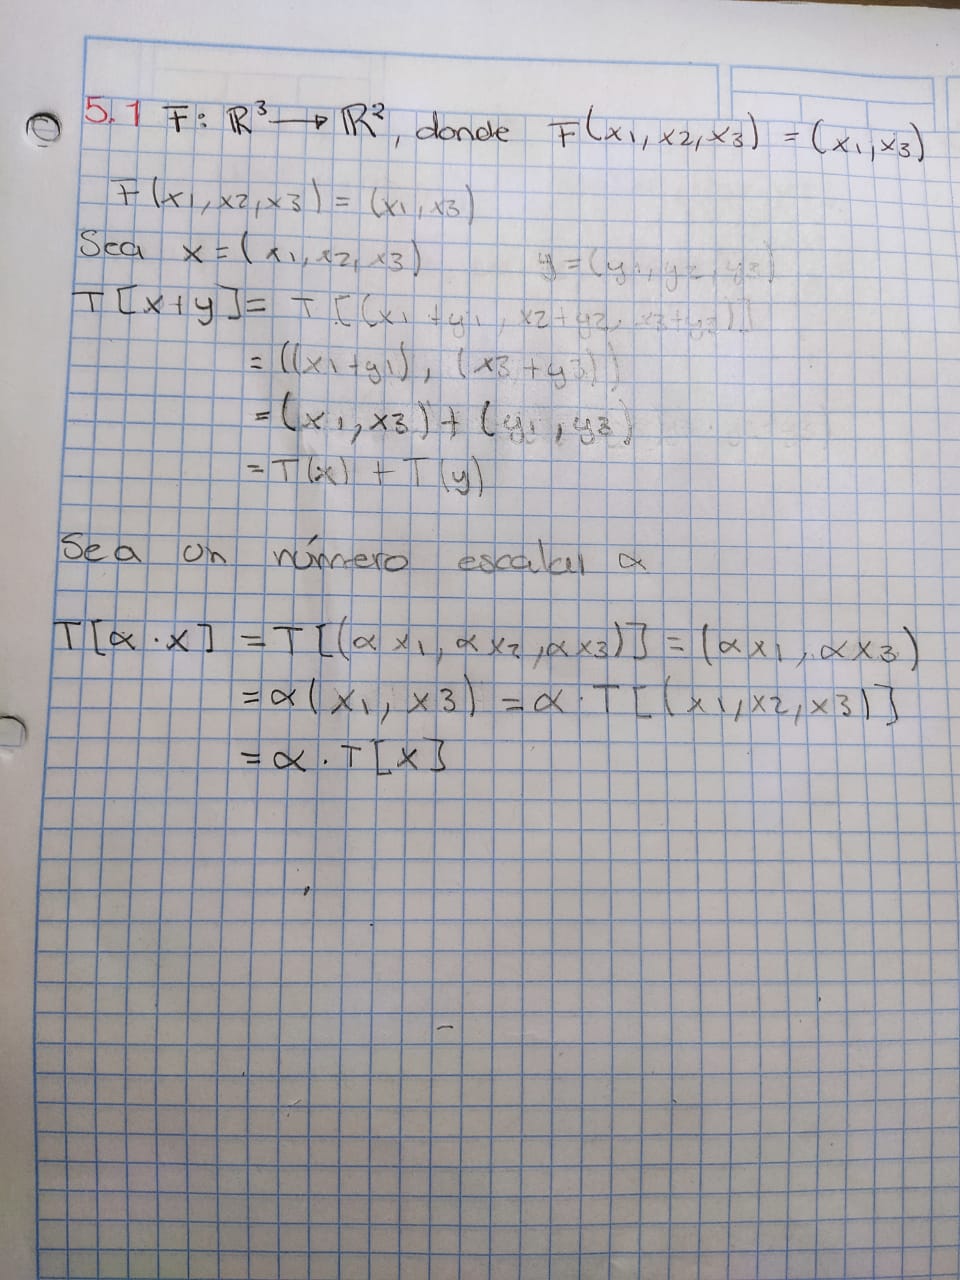 5.1 F: ℝ³ → ℝ², donde F(x1, x2, x3) = (x1, x3)
F(x1, x2, x3) = (x1, x3)
Sea x = (x1, x2, x3) y = (y1, y2, y3)
T[x+y] = T[(x1+y1, x2+y2, x3+y3)]
= ((x1+y1), (x3+y3))
= (x1, x3) + (y1, y3)
= T(x) + T(y)
Sea un número escalar α
T[α · x] = T[(αx1, αx2, αx3)] = (αx1, αx3)
= α(x1, x3) = α · T[(x1, x2, x3)]
= α · T[x]